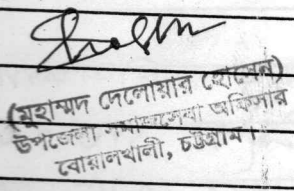 (মুহাম্মদ দেলোয়ার হোসেন)
উপজেলা সমাজসেবা অফিসার
বোয়ালখালী, চট্টগ্রাম।